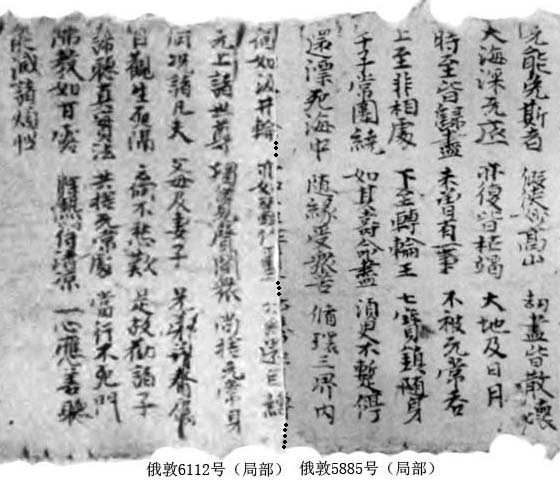 无能免斯者 假使妙高山 劫盡皆散壞
大海深无底 亦復皆枯竭 大地及日月
時至皆歸盡 未曾有一事 不被无常吞
上至非相處 下至轉輪王 七寶鎮隨身
千子常圍繞 如其壽命盡 須臾不暫停
還漂死海中 随緣受眾苦 循環三界內
如汲井輪 亦如蠶作繭
无上諸世尊 獨覺聲聞眾 尚捨无常身
何況諸凡夫 父母及妻子 兄弟諸眷屬
目觀生死隔 不愁歎 是故勸諸子
諦聽真實法 共捨无常處 當行不死門
佛教如甘露 除熱得清涼 一心應善聽
能滅諸煩惱
俄敦6112号（局部） 俄敦5885号（局部）